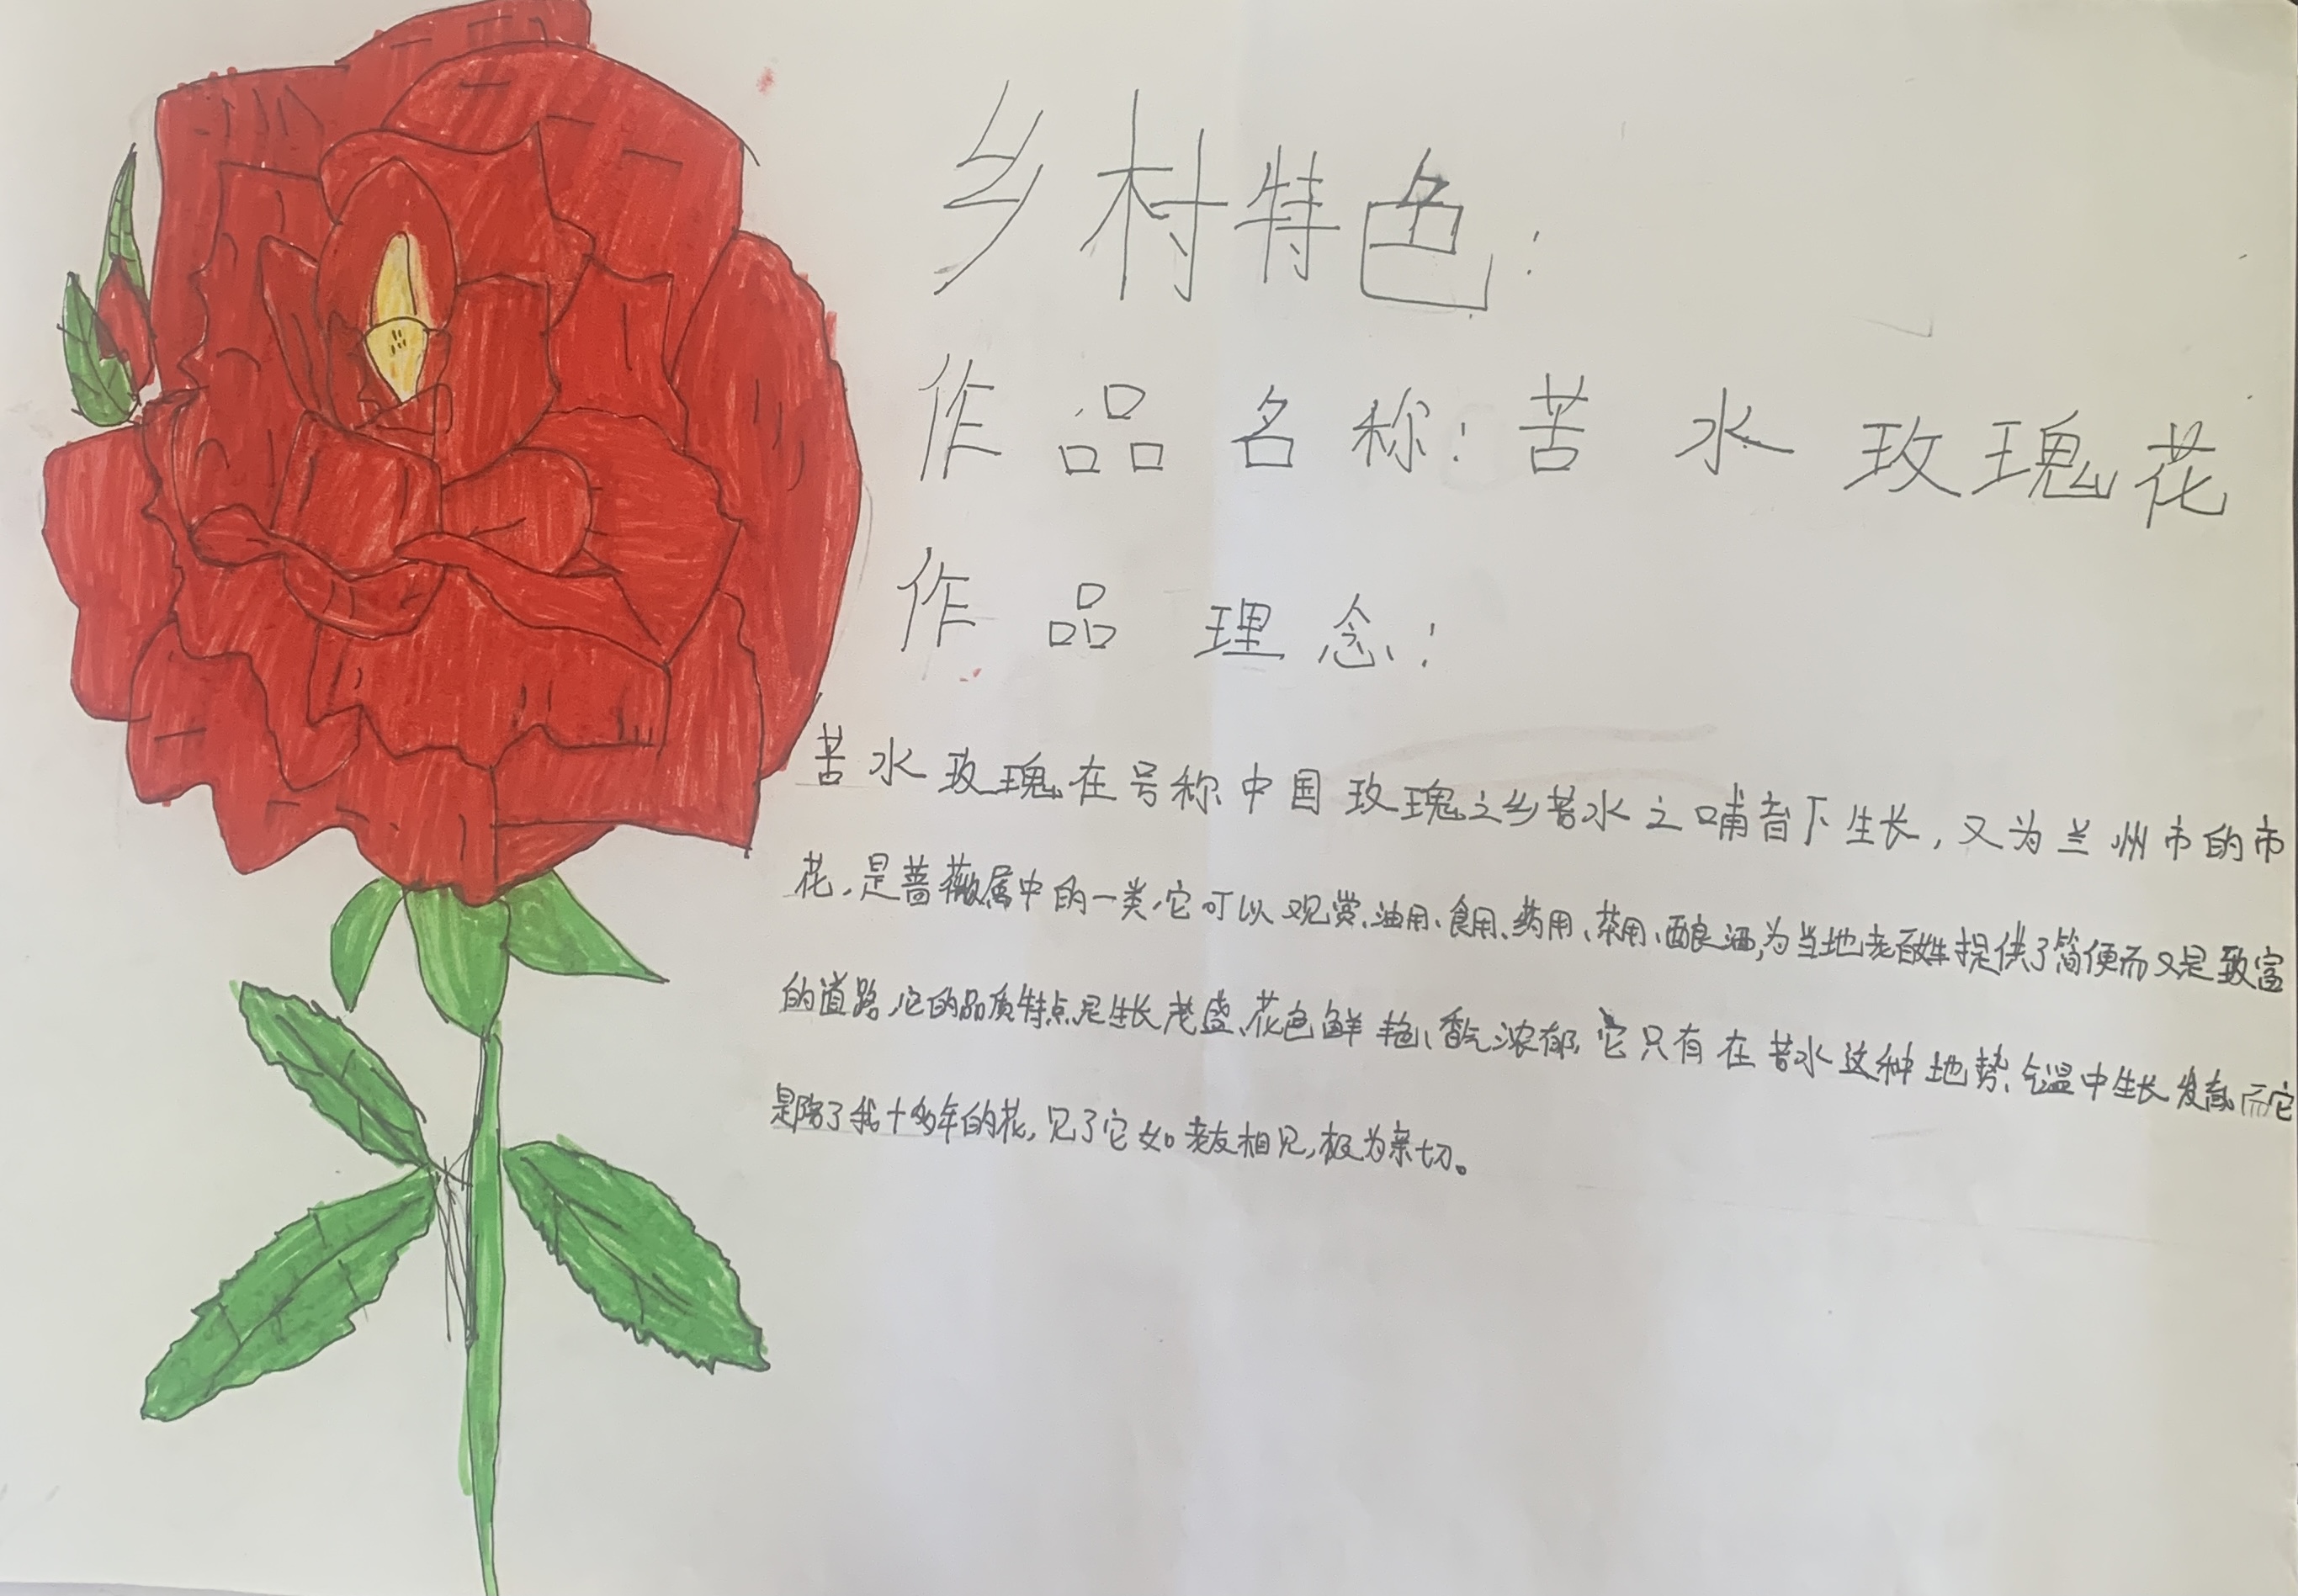 乡村特色:
作品名称:苦水玫瑰花
作品理念:
苦水玫瑰在号称中国玫瑰之乡苦水之哺育下生长,又为兰州市的市
花,是蔷薇属中的一类,它可以观赏、油用、食用、药用、茶用、酿酒,为当地老百姓提供了简便而又是致富
的道路,它的品质特点是生长老盛、花色鲜艳、香气浓郁,它只有在苦水这种地势、气温中生长发育,而它
是陪了我十多年的花,见了它如老友相见,极为亲切。